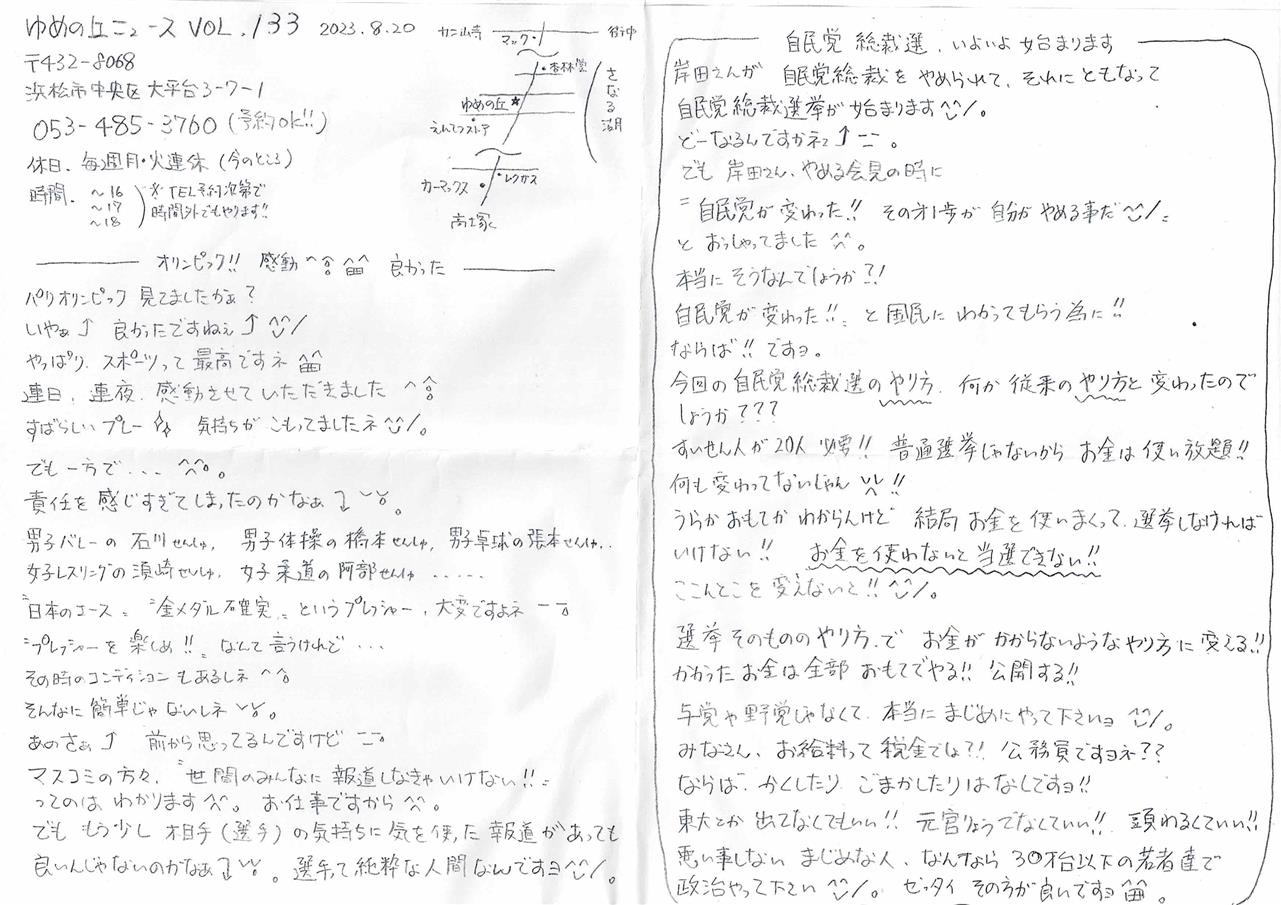 ゆめの丘ニュース VOL.133 2023.8.20
〒432-8068
浜松市中央区大平台3-7-1
053-485-3760(予約OK!!)
休日. 毎週月・火連休(今のところ)
時間. ~16
~17
~18
※TEL予約次第で
時間外でもやります!!
カンザン寺
街中
マック
杏林堂
ゆめの丘★
えんてつストア
さなる湖
カーマックス
レクサス
高塚
オリンピック!! 感動 良かった
パリオリンピック 見てましたかぁ?
いやぁ↑ 良かったですねぇ↑^^/
やっぱり、スポーツって最高ですネ
連日、連夜、感動させていただきました
すばらしいプレー 気持ちがこもってましたネ^^/。
でも一方で... 。
責任を感じすぎてしまったのかなぁ↓ 。
男子バレーの石川せんしゅ, 男子体操の橋本せんしゅ, 男子卓球の張本せんしゅ..
女子レスリングの須崎せんしゅ, 女子柔道の阿部せんしゅ.....
〝日本のエース〟〝金メダル確実〟というプレッシャー、大変ですよネ
〝プレッシャーを楽しめ!!〟なんて言うけれど...
その時のコンディションもあるしネ
そんなに簡単じゃないしネ 。
あのさぁ↑ 前から思ってるんですけど
マスコミの方々、〝世間のみんなに報道しなきゃいけない!!〟
ってのは、わかります^^。お仕事ですから^^。
でも もう少し 相手(選手)の気持ちに気を使った報道があっても
良いんじゃないのかなぁ↓ 。選手って純粋な人間なんですヨ^^/。
自民党 総裁選、いよいよ始まります
岸田さんが 自民党総裁をやめられて、それにともなって
自民党総裁選挙が始まります^^/。
どーなるんですかネェ↑ 。
でも 岸田さん、やめる会見の時に
〝自民党が変わった!! その才1歩が 自分がやめる事だ^^/〟
とおっしゃってました^^。
本当にそうなんでしょうか?!
自民党が変わった!!〟と国民にわかってもらう為に!!
ならば!!ですヨ。
今回の自民党総裁選のやり方、何か従来のやり方と変わったので
しょうか???
すいせん人が20人必要!! 普通選挙じゃないからお金は使い放題!!
何も変わってないじゃん !!
うらかおもてかわからんけど 結局お金を使いまくって、選挙しなければ
いけない!! お金を使わないと当選できない!!
ここんとこを変えないと!!^^/。
選挙そのもののやり方、で お金がかからないようなやり方に変える!!
かかったお金は全部おもてでやる!! 公開する!!
与党や野党じゃなくて、本当にまじめにやって下さいヨ^^/。
みなさん、お給料って税金では?! 公務員ですヨネ??
ならば、かくしたり、ごまかしたりはなしですヨ!!
東大とか出てなくてもいい!! 元官りょうでなくていい!! 頭わるくていい!!
悪い事しない まじめな人、なんなら30才台以下の若者達で
政治やって下さい^^/。ゼッタイその方が良いですヨ 。